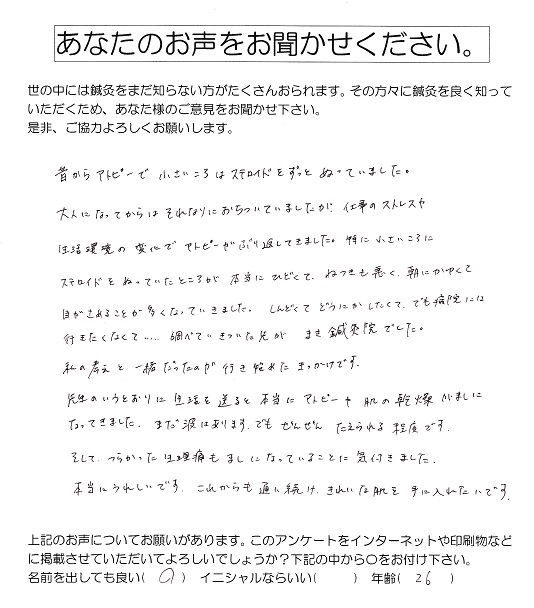 あなたのお声をお聞かせください。
世の中には鍼灸をまだ知らない方がたくさんおられます。その方々に鍼灸を良く知って
いただくため、あなた様のご意見をお聞かせ下さい。
是非、ご協力よろしくお願いします。
昔からアトピーで 小さいころはステロイドをずっと ぬっていました。
大人になってからは それなりにおちついていましたが、仕事のストレスや
生活環境の変化で アトピーがぶり返してきました。特に 小さいころに
ステロイドを ぬっていたところが 本当にひどくて、ねつきも悪く、朝にかゆくて
目がさめることが 多くなっていきました。しんどくて どうにかしたくて、でも病院には
行きたくなくて…. 調べていきついた先が まき鍼灸院でした。
私の考えと 一緒だったのが 行き始めた きっかけです。
先生のいうとおりに 生活を送ると 本当に アトピーや 肌の乾燥がましに
なってきました。まだ波はあります。でも ぜんぜん たえられる 程度です。
そして、つらかった 生理痛も ましになっていることに 気付きました。
本当にうれしいです。これからも 通い続け、きれいな肌を 手に入れたいです。
上記のお声についてお願いがあります。このアンケートをインターネットや印刷物など
に掲載させていただいてよろしいでしょうか？下記の中から〇をお付け下さい。
名前を出しても良い( 〇 ) イニシャルならいい( ) 年齢( 26 )